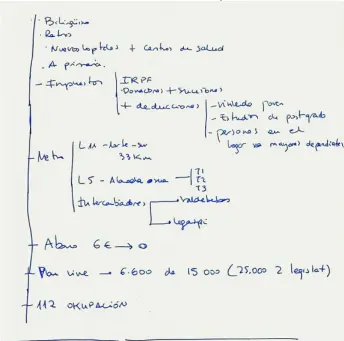 · Bilingüismo
· Ratios
· Nuevos hospitales + Centros de salud
· A. primaria.
- Impuestos IRPF
Donaciones + sucesiones
+ deducciones - vivienda joven
- Estudios de postgrado
- personas en el
hogar sea mayores dependientes
- Metro L11 - norte - sur
33 Km
L5 - Alameda osuna T1
T2
T3
Intercambiadores Valdebebas
Legazpi
- Abono 6€ → 0
- Plan vive → 6.600 de 15 000 (25.000 2 legislat)
- 112 OKUPACIÓN